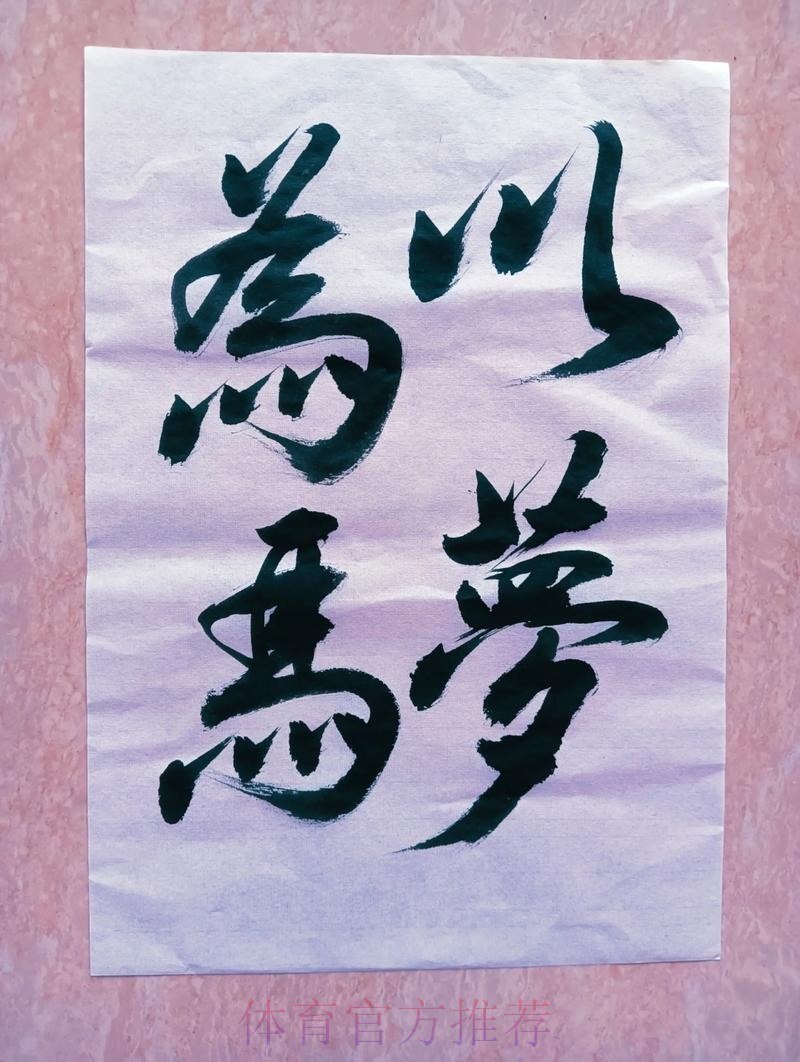 以夢
為馬
体育官方推荐